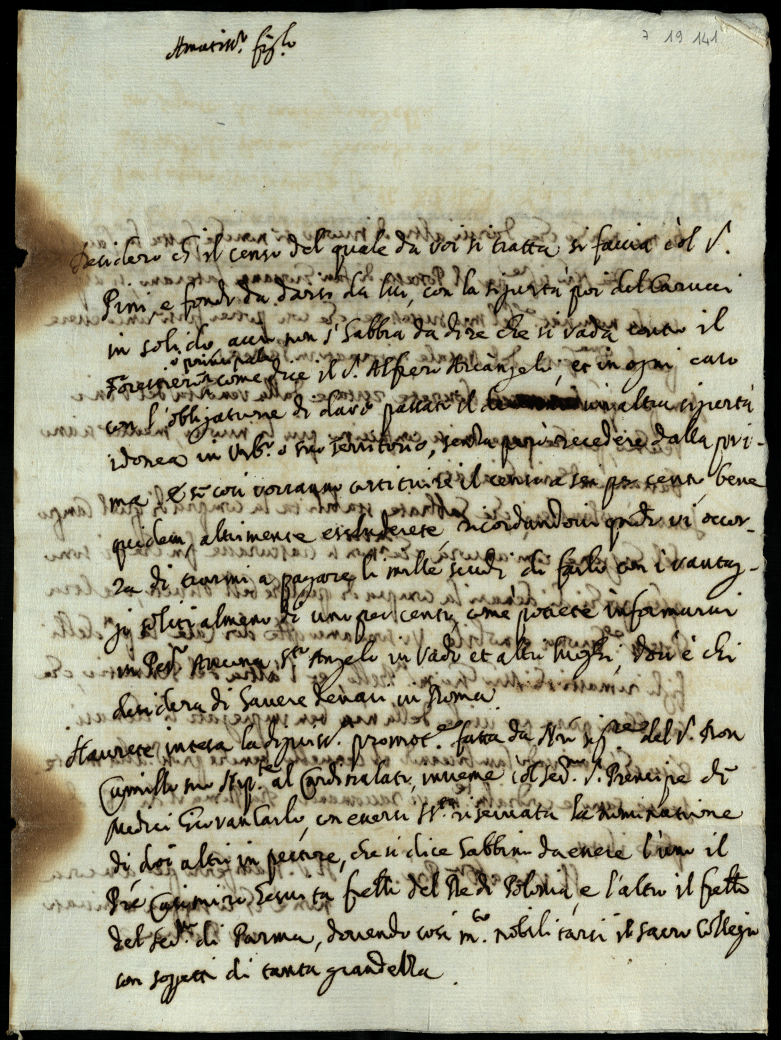 7 19 141
Amatiss.º figlo
Desidero ch il censo del quale da voi si tratta si faccia col S.
Pini, e fondi da darsi da lui, con la sijurtà poi del Carucci
in solido, acciò non s'habbia da dire che si vada contro il
o principale
come dice il S. Alfiero Arcangeli, et in ogni caso
con l'obligatione di dare il un altra sijurtà
idonea in Urb.º o suo territorio, senza però recedere dalla pri-
ma. Et se così vorranno costituire il censo a sei per cento, bene
quidem, altrimente, ricordandovi quando vi occor-
ra di tormi a pagare li mille scudi di farlo con i vantag-
gi soliti almeno di uno per cento, come potete informarvi
in Pes.º Ancona, S.to Angelo in Vado et altri luoghi, dov'è chi
desidera di havere denari in Roma.
Haurete intesa la promot.e fatta da N.ro Sig.re del S. Don
Camillo suo Nip.te al Cardinalato, insieme col Ser.mo S. Prencipe di
Medici Giovan Carlo, con essersi S. S.tà riservata la nominatione
di doi altri in pectore, che si dice habbino da essere l'uno il
P're Casimiro Gesuita frello del Re di Polonia, e l'altro il frello
del Ser.mo di Parma, dovendo così m.to nobilitarsi il Sacro Collegio
con soggetti di tanta grandezza.